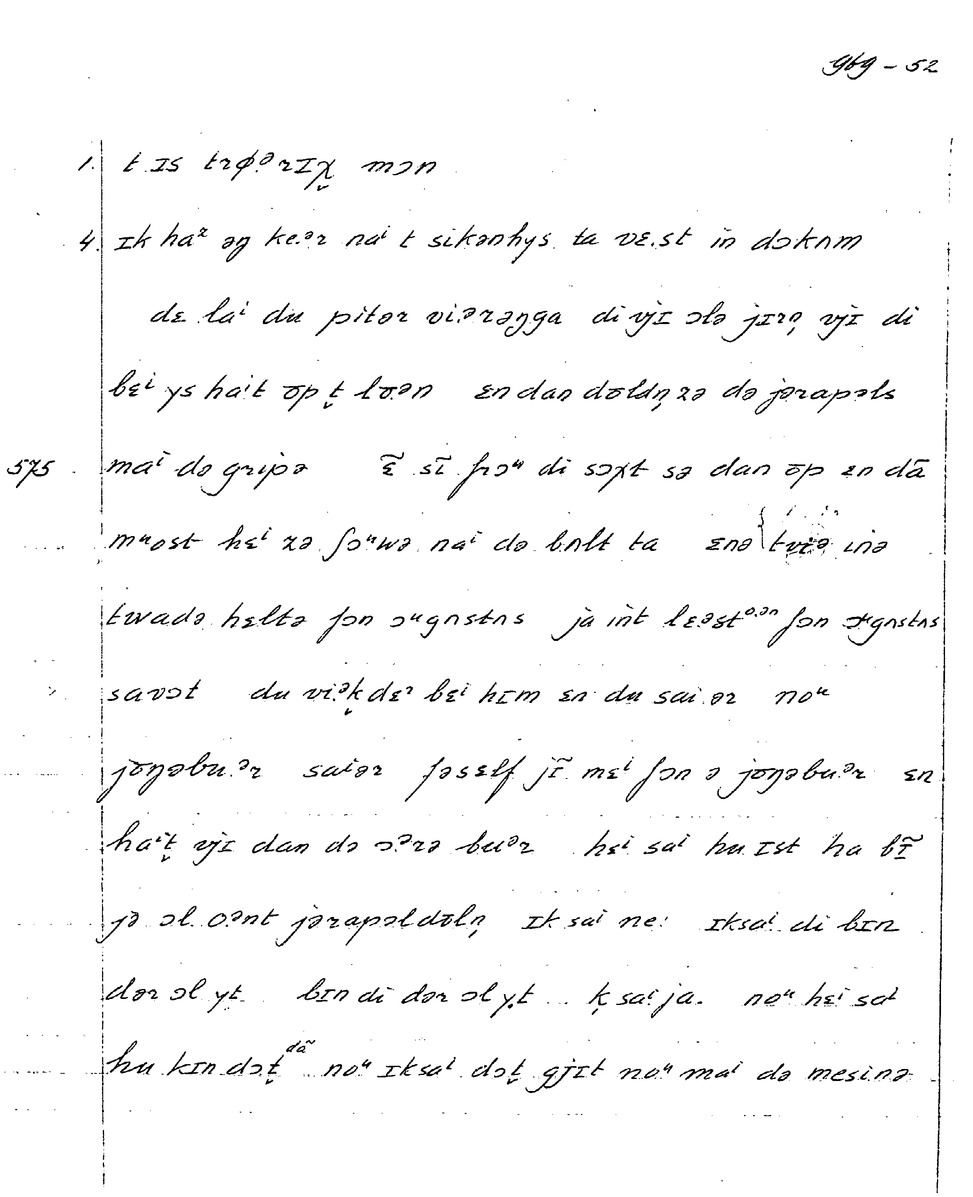 gbg - 52
1. t ɪs trø.ᵊrɪχ̬ mɔn
4. ɪk haᶻ əŋ ke.ᵊr naⁱ t sikənhys. ta vɛ.st in dɔkʌm
dɛ laⁱ du pitər vi.ᵊrəŋga di vjɪ ɔlə jɪrn̩ vjɪ di
bɛⁱ ys haⁱt ʊp t̬ lʊ.ən ɛn dan dʊldn̩ zə də jərapəls
575 maⁱ də gripə ɛ̃ sɪ̃ frɔᵘ di sɔχt sə dan ʊp ɛn dã
mᵘɔst hɛⁱ zə ʃɔᵘwə naⁱ də bʌlt ta ɛnə inə
twadə hɛltə fɔn ɔᵘgʌstʌs ja int lɛ.əst ᵒ·ᵊⁿ fɔn ɔᵘgʌstʌs
savɔt du vi.ᵊk̬ dɛʳ bɛⁱ hɪm ɛn du sai.ər nɔᵘ
jʊŋəbu.ᵊr saiər fəsɛlf jɪ̃ mɛⁱ fɔn ə jʊŋəbu.ᵊr ɛn
haⁱt̬ vjɪ dan də ɔ.ᵊrə bu.ᵊr hɛⁱ saⁱ hu ɪst ha bɪ̃
jə ɔl o.ᵊnt jərapəldʊln̩ ɪk saⁱ ne: ɪk saⁱ di bɪn
dər ɔl yt. bɪn di dər ɔl y.t k̩ saⁱ ja. nɔᵘ hɛⁱ saⁱ
hu kɪn dɔt̬ dã nɔᵘ ɪk saⁱ dɔt̬ gjɪt nɔᵘ maⁱ də mesinə